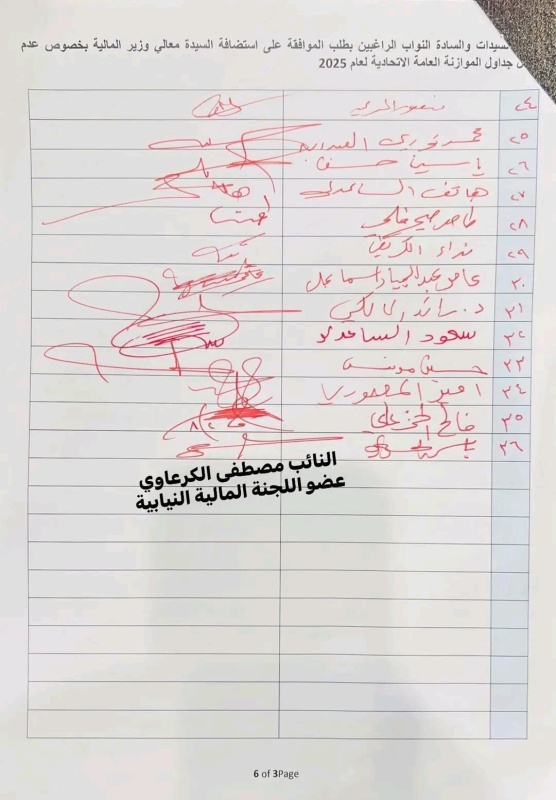 سيدات والسادة النواب الراغبين بطلب الموافقة على استضافة السيدة معالي وزير المالية بخصوص عدم
جداول الموازنة العامة الاتحادية لعام 2025
٢٤
٢٥ محمد نوري
٢٦ ياسين
٢٧ هاتف الساعدي
٢٨
٢٩ نداء الكريطي
٣٠ عامر عبد الجبار اسماعيل
٣١ د. رائد المالكي
٣٢ سعود الساعدي
٣٣ حسين مونس
٣٤ امير المعموري
٣٥ فالح الخزعلي
٣٦
النائب مصطفى الكرعاوي
عضو اللجنة المالية النيابية
6 of 3Page